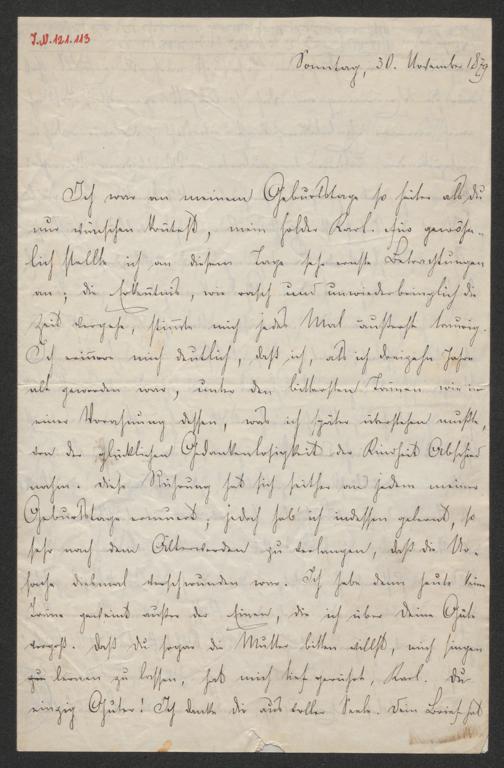 J.N. 121.113
Sonntag, 30. November 1879
Ich war an meinem Geburtstage so heiter als du
nur wünschen kontest, mein holder Karl. Für gewöhn-
lich stellte ich an diesem Tage sehr ernste Betrachtungen
an; die Erkentnis, wie rasch und unwiederbringlich die
Zeit vergehe, stimte mich jedes Mal äußerst traurig.
Ich erinnere mich deutlich, daß ich, als ich dreizehn Jahre
alt geworden war, unter den bittersten Tränen wie in
einer Vorahnung dessen, was ich später überstehen mußte,
von der glücklichen Gedankenlosigkeit der Kindheit Abschied
nahm. Diese Rührung hat sich seither an jedem meiner
Geburtstage erneuert, jedoch hab' ich indessen gelernt, so
sehr nach dem Älterwerden zu verlangen, daß die Ur-
sache diesmal verschwunden war. Ich habe denn heute keine
Träne geweint außer der Einen, die ich über Deine Güte
vergoß. Daß Du sogar die Mutter bitten willst, mich singen
zu lernen zu lassen, hat mich tief gerührt, Karl. Du
einzig Guter! Ich danke dir aus voller Seele. Dein Brief hat